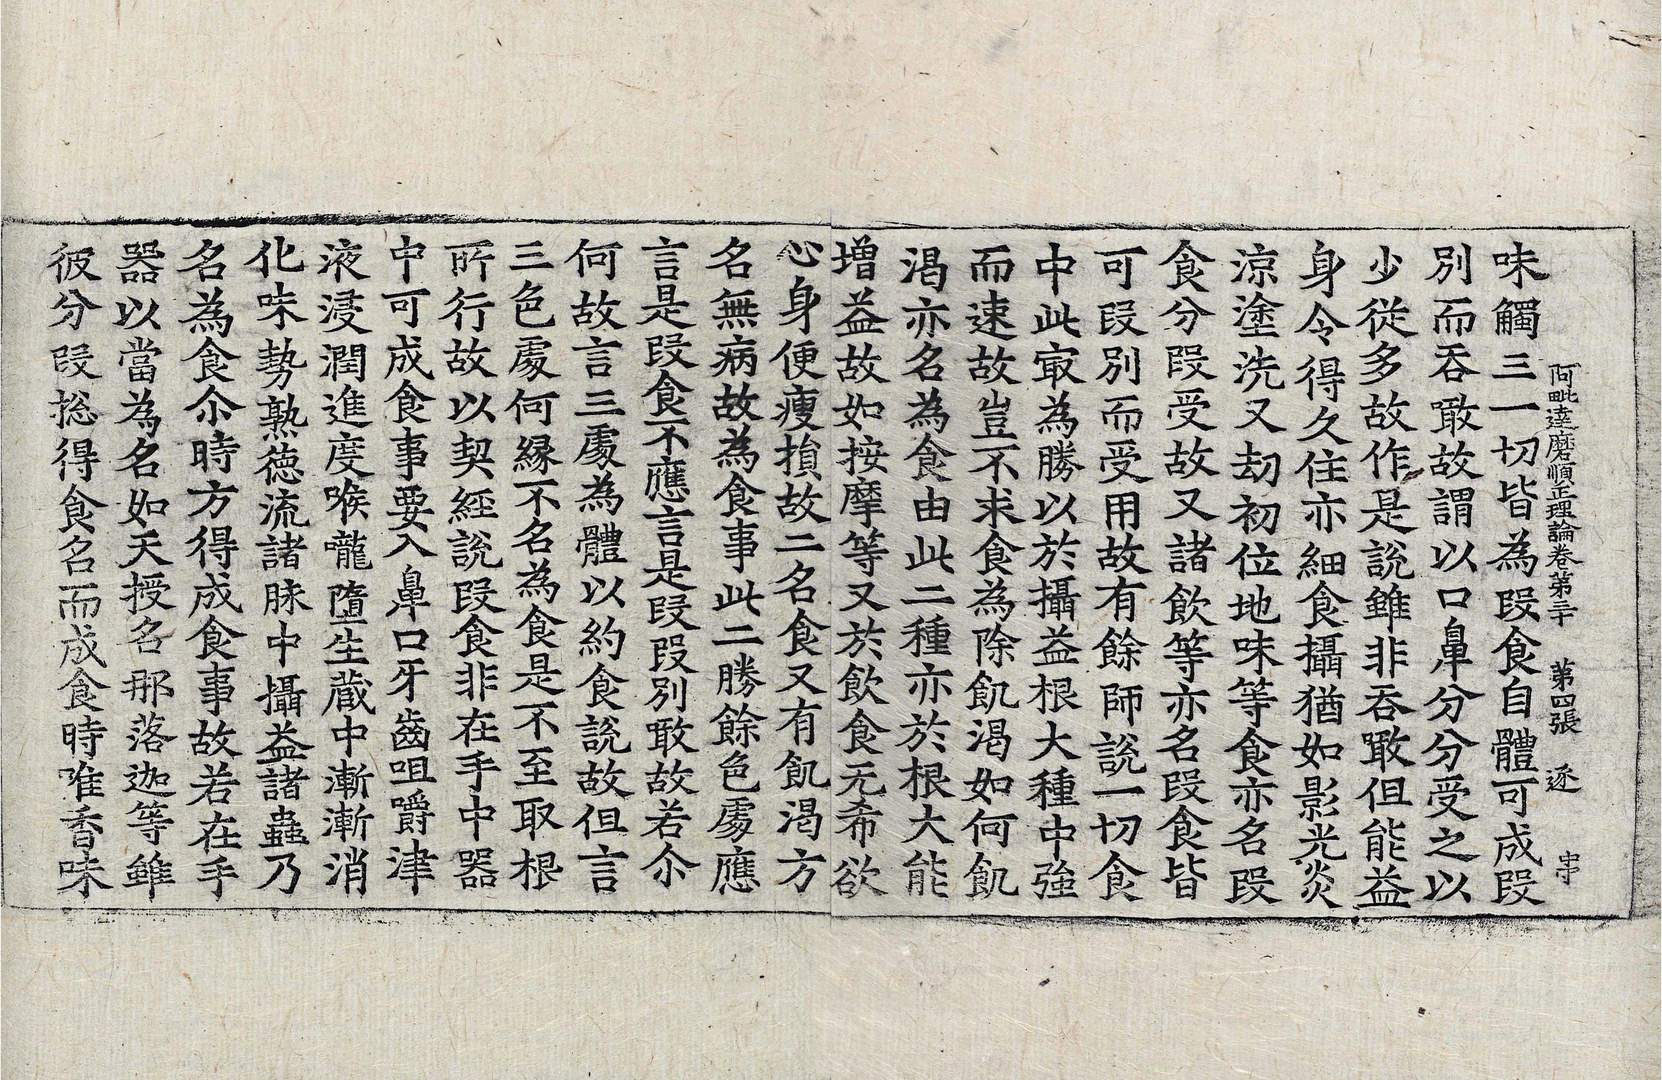 阿毗達磨順正理論卷第三十　第四張　逐　字
味觸三一切皆為段食自體可成段
別而吞噉故謂以口鼻分分受之以
少從多故作是說雖非吞噉但能益
身令得久住亦細食攝猶如影光炎
涼塗洗又劫初位地味等食亦名段
食分段受故又諸飲等亦名段食皆
可段別而受用故有餘師說一切食
中此㝡為勝以於攝益根大種中強
而速故豈不求食為除飢渴如何飢
渴亦名為食由此二種亦於根大能
增益故如按摩等又於飲食无希欲
心身便瘦損故二名食又有飢渴方
名無病故為食事此二勝餘色處應
言是段食不應言是段段別噉故若尒
何故言三處為體以約食說故但言
三色處何縁不名為食是不至取根
所行故以契經說段食非在手中器
中可成食事要入鼻口牙齒咀嚼津
液浸潤進度喉嚨墮生藏中漸漸消
化味勢熟德流諸脉中攝益諸蟲乃
名為食尒時方得成食事故若在手
器以當為名如天授名那落迦等雖
彼分段捴得食名而成食時唯香味